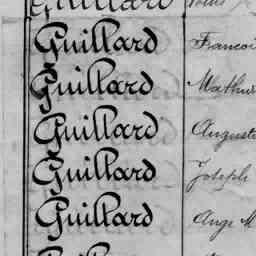 Guillard
Guillard Francoi
Guillard Mathur
Guillard Auguste
Guillard Joseph
Guillard Ange M